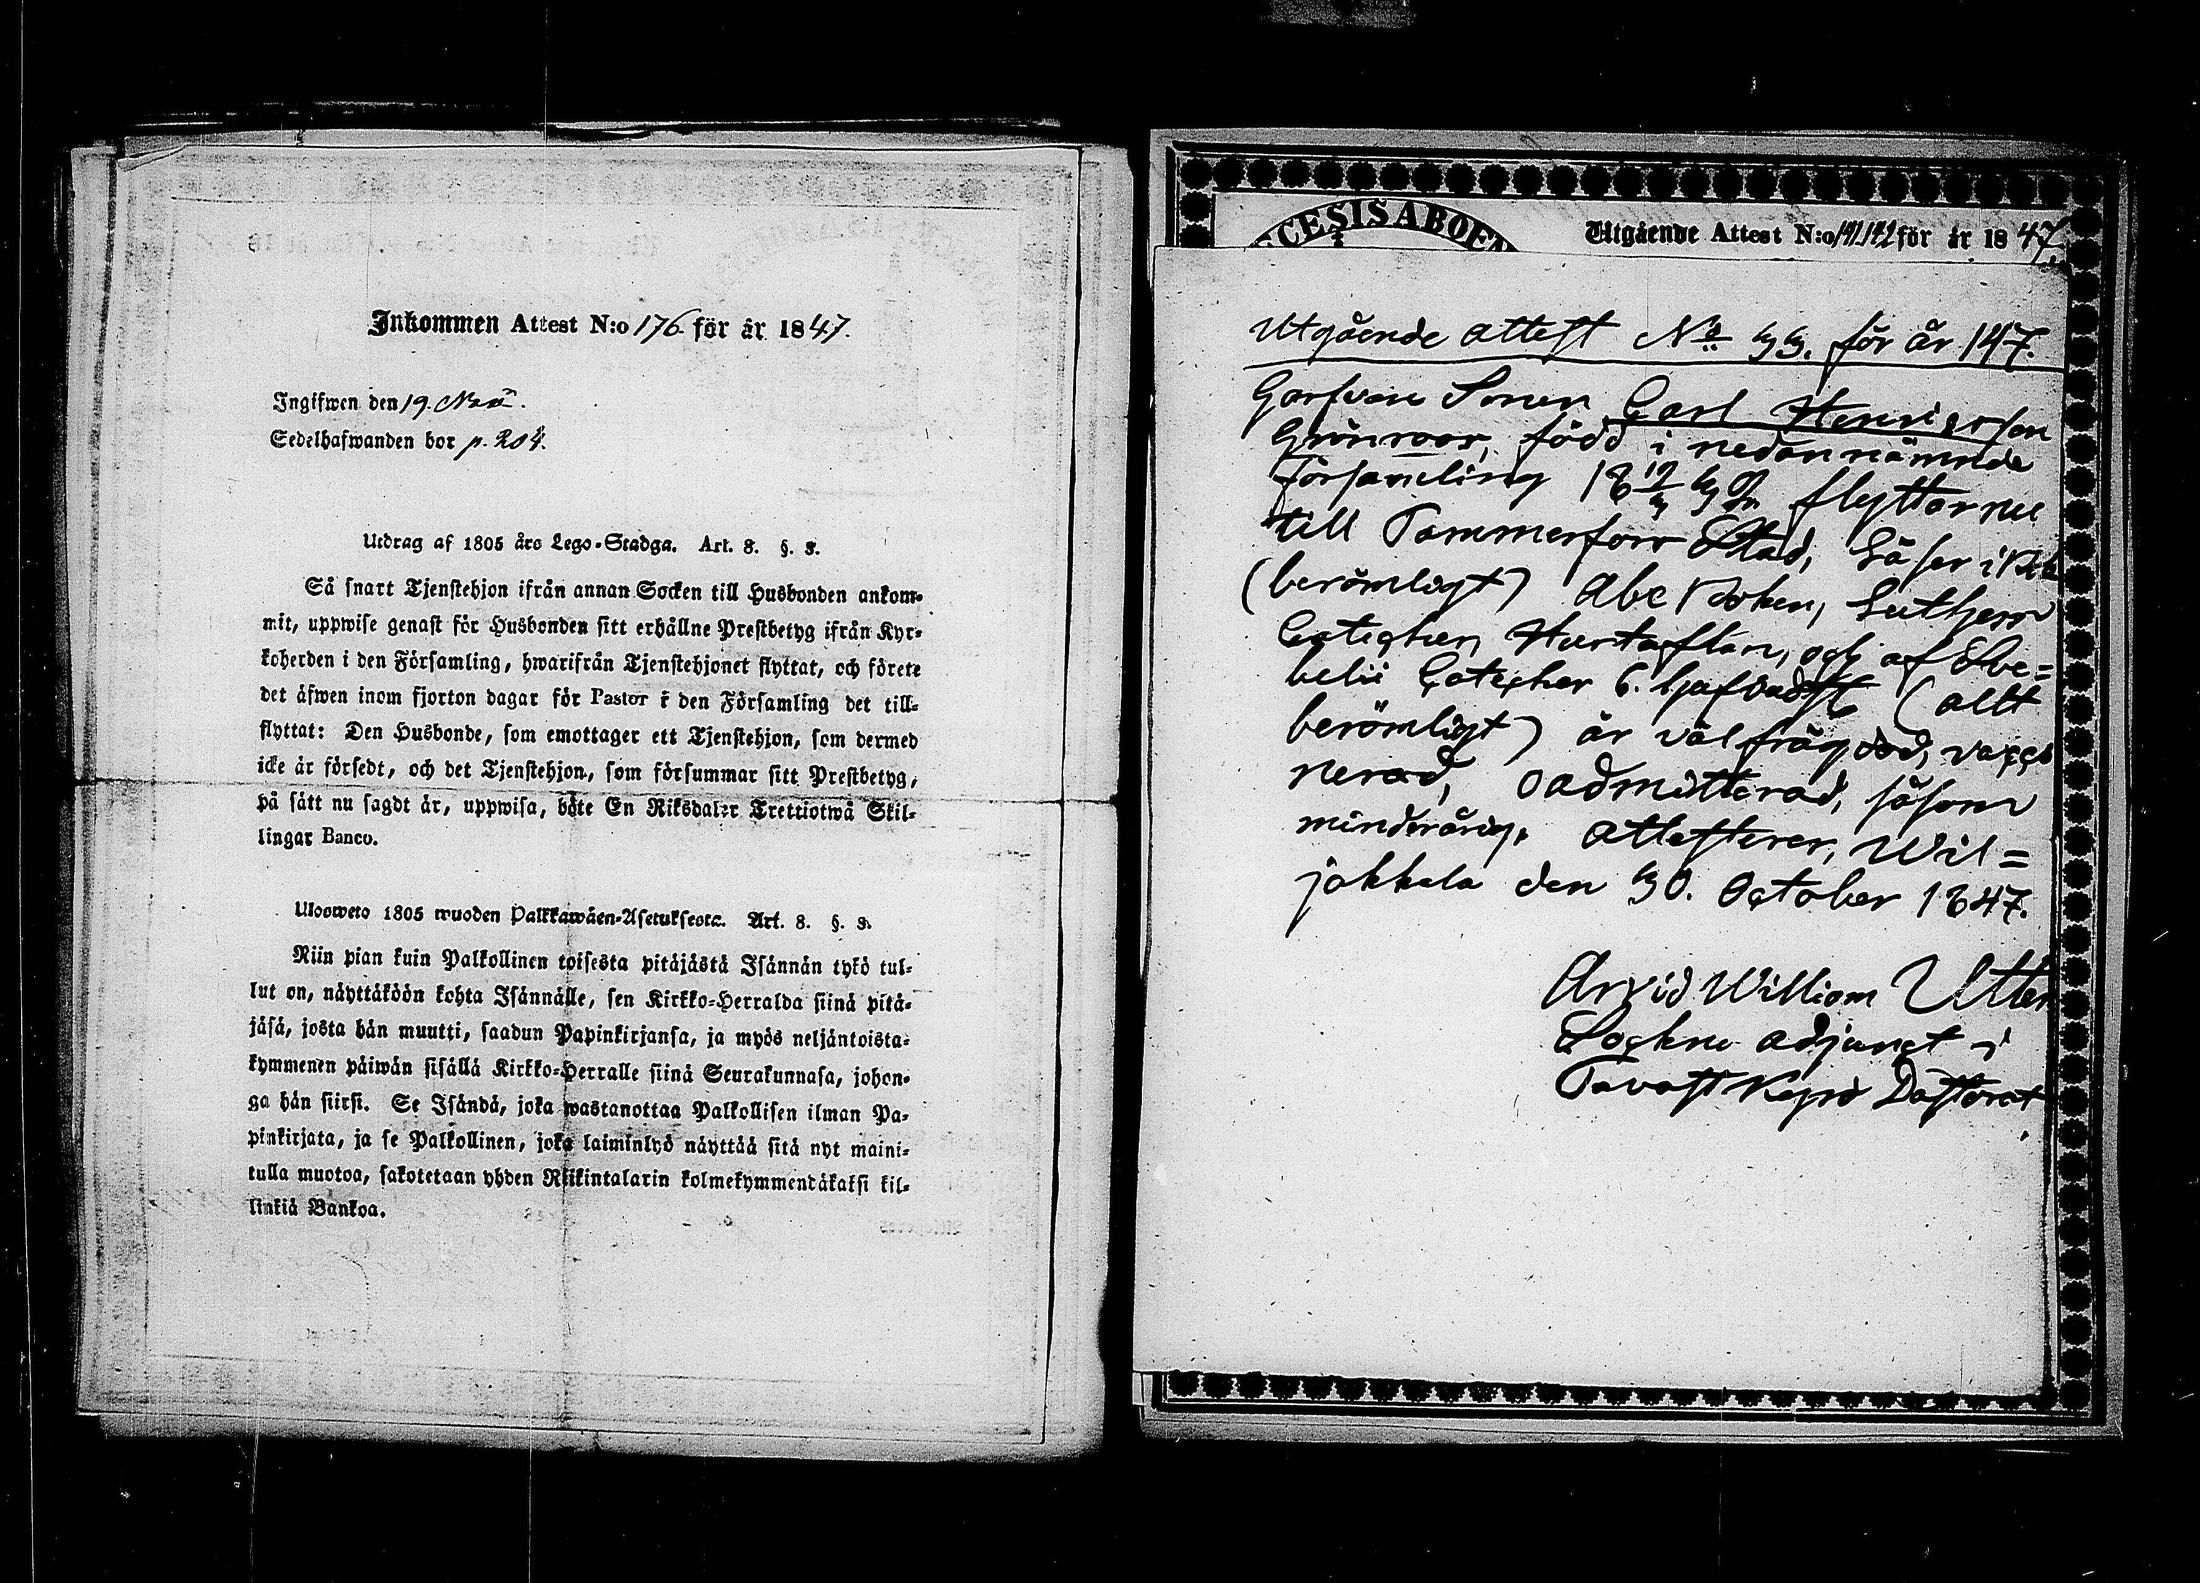 Inkommen Attest N:o 176. för år 1847.
Ingifwen den 19. Nov.
Sedelhafwanden bor p. 204.
Utdrag af 1805 års Lego-Stadga. Art. 8. §. 3.
Så snart Tjenstehjon ifrån annan Socken till Husbonden ankom-
mit, uppwise genast för Husbonden sitt erhållne Prestbetyg ifrån Kyr-
koherden i den Församling, hwarifrån Tjenstehjonet flyttat, och förete
det äfwen inom fjorton dagar för Pastor i den Församling det till-
flyttat: Den Husbonde, som emottager ett Tjenstehjon, som dermed
icke är försedt, och det Tjenstehjon, som försummar sitt Prestbetyg,
på sätt nu sagdt är, uppwisa, böte En Riksdaler Trettiotwå Skil-
lingar Banco.
Ulosweto 1805 wuoden Palkkawäen-Asetuksesta. Art. 8. §. 3.
Niin pian kuin Palkollinen toisesta pitäjästä Isännän tykö tul-
lut on, näyttäköön kohta Isännälle, sen Kirkko-Herralda siinä pitä-
jäsä, josta hän muutti, saadun Papinkirjansa, ja myös neljäntoista-
kymmenen päiwän sisällä Kirkko-Herralle siinä Seurakunnasa, johon-
ga hän siirsi. Se Isändä, joka wastanottaa Palkollisen ilman Pa-
pinkirjata, ja se Palkollinen, joka laiminlyö näyttää sitä nyt maini-
tulla muotoa, sakotetaan yhden Riikintalarin kolmekymmendäkaksi kil-
linkiä Bankoa.
CESIS ABOEN
Utgående Attest N:o 141,142 för år 1847.
Utgående attest No 33. för år 147.
Garfvare Sonen Carl Henricsson
Grönroos, född i nedannämnde
församling flyttar nu
till Tammerfors Stad, Läser i Bok
(berömligt) Abc Boken, Lutheri
Cateches, Hustaflan, och af Sve-
belii Cateches 6. hufvudst (allt
berömligt) är väl frägdad, vacci
nerad, oadmitterad, såsom
minderårig. attesterer, Wil=
jakkala den 30. October 1847.
Arvid William Utter
Sockne adjunct i
Tavast Kyrö Pastorat.